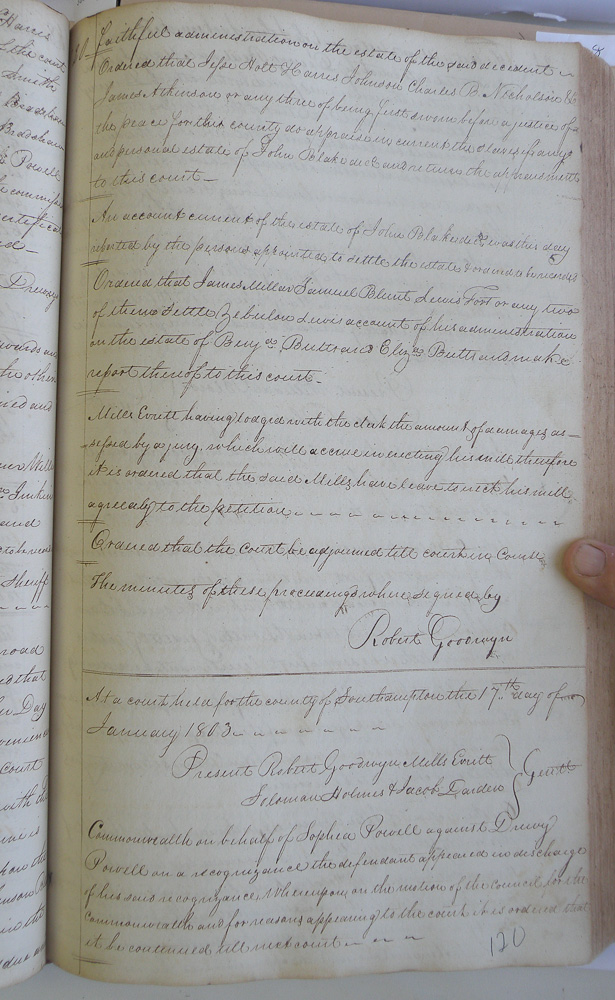 faithful administration on the estate of the said decedent
Ordered that Jesse Holt Harris Johnson Charles B. Nicholson &
James Atkinson or any three of being first sworn before a justice of
the peace for this county do appraise in current the slaves if any &
and personal estate of John Blake dec.d and return the appraisment
to this court
An account current of the estate of John Blake dec.d was this day
reported by the persons appointed to settle the estate & ordered to be recorded
Ordered that James Millar Samuel Blunt Lewis Fort or any two
of them Settle Zebulon Lewis account of his administration
on the estate of Benj.a Butts and Eliz.a Butts and make
report thereof to this court
Mills Everitt having lodged with the clerk the amount of damages as-
sessed by a jury, which will accrue in erecting his mill therefore
it is ordered that the said Mills have leave to erect his mill
agreeably to the petition
Ordered that the court be adjourned till court in Course
The minutes of these proceedings where signed by
Robert Goodwyn
At a court held for the county of Southampton the 17th day of
January 1803
Present Robert Goodwyn Mills Everitt
Soloman Holmes & Jacob Darden
Gentt
Commonwealth on behalf of Sophia Powell against Drewry
Powell on a recognizance the defendant appeared in discharge
of his said recognizance, Whereupon on the motion of the council for the
commonwealth and for reasons appearing to the court it is ordered that
it be continued till next court
120